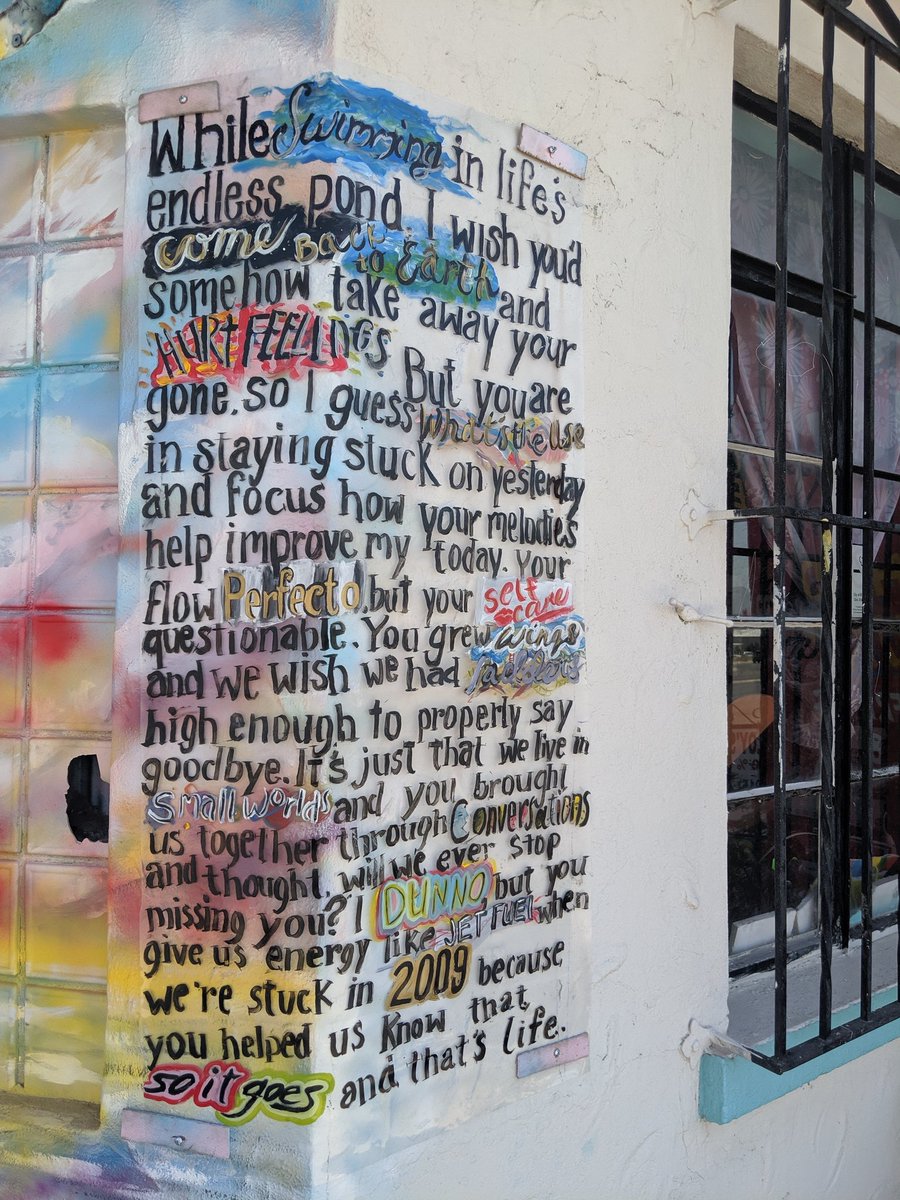 While Swimming in life's
endless pond I wish you'd
come Back to Earth and
somehow take away your
HURT FEELINGS. But you are
gone, so I guess What's the use
in staying stuck on yesterday
and focus how your melodies
help improve my today. Your
flow Perfecto, but your self care
questionable. You grew wings
and we wish we had ladders
high enough to properly say
goodbye. It's just that we live in
Small worlds and you brought
us together through Conversations
and thought, will we ever stop
missing you? I DUNNO, but you
give us energy like JET FUEL when
we're stuck in 2009 because
you helped us know that
so it goes and that's life.